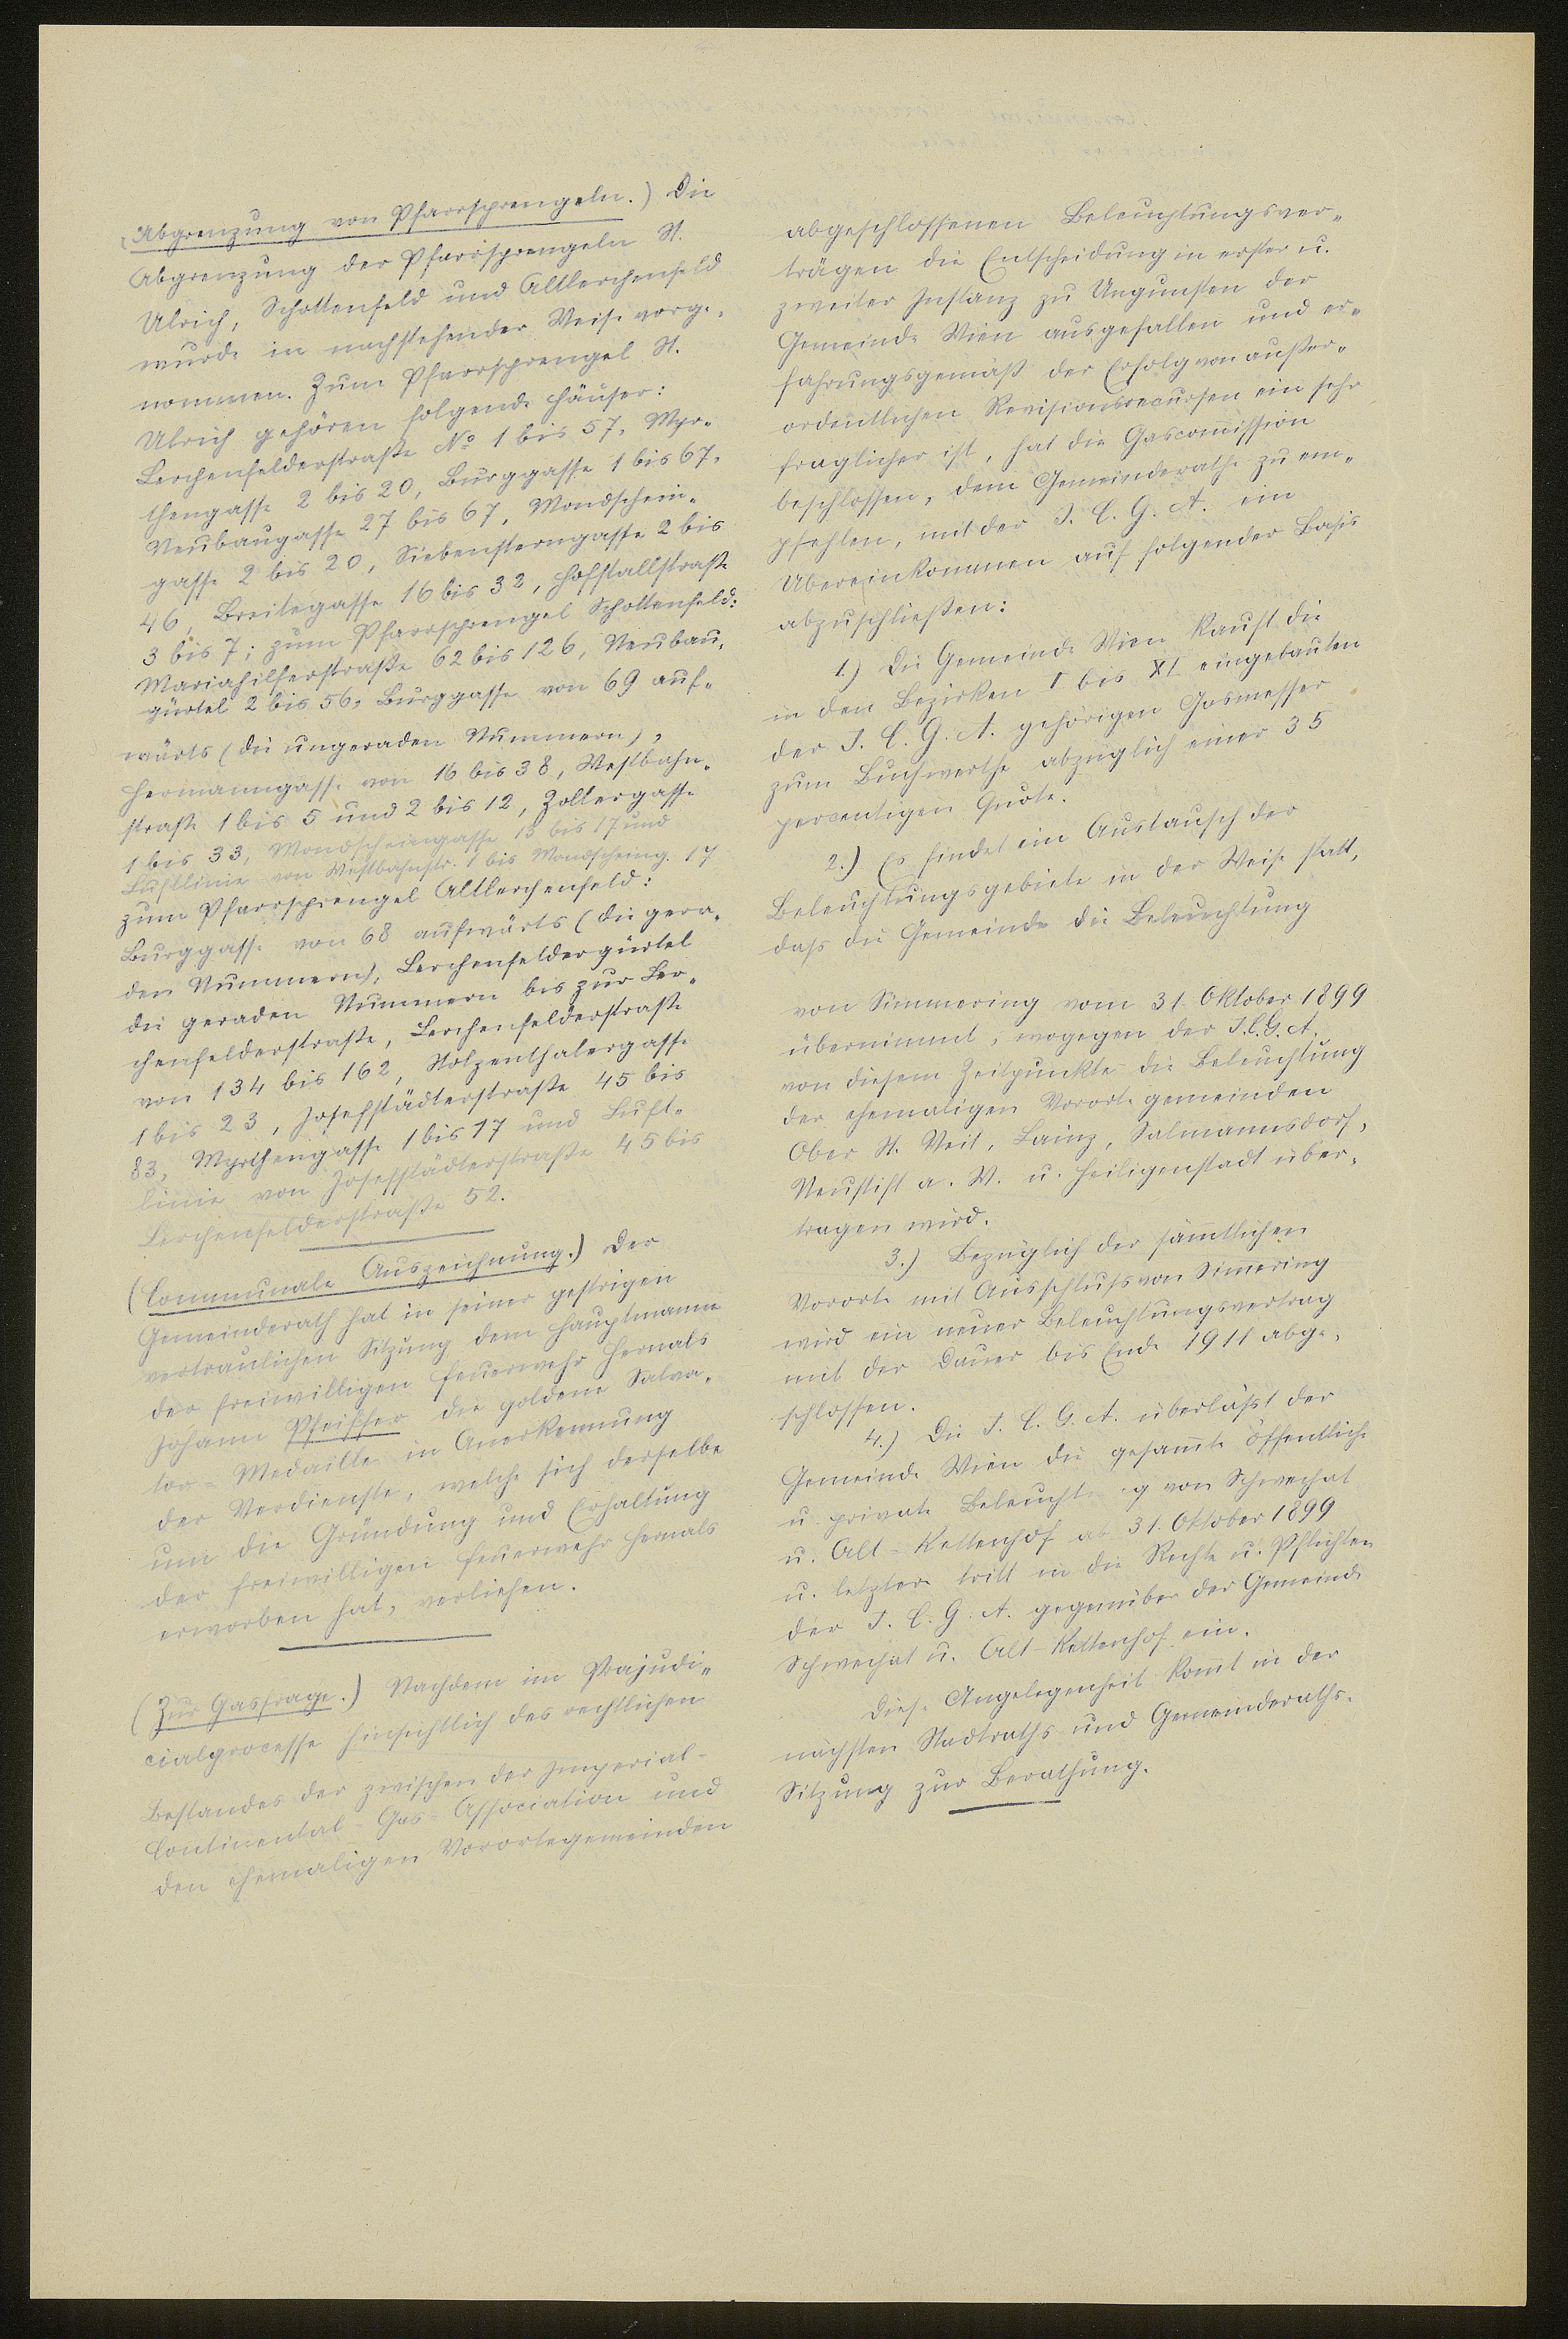 (Abgrenzung von Pfarrsprengeln.) Die
Abgrenzung der Pfarrsprengeln St.
Ulrich, Schottenfeld und Altlerchenfeld
wurde in nachstehender Weise vorge-
nommen. Zum Pfarrsprengel St.
Ulrich gehören folgende Häuser:
Lerchenfelderstraße No 1 bis 57, Myr-
thengasse 2 bis 20, Burggasse 1 bis 67,
Neubaugasse 27 bis 67, Mondschein-
gasse 2 bis 20, Siebensterngasse 2 bis
46, Breitegasse 16 bis 32, Hofstallstraße
3 bis 7; zum Pfarrsprengel Schottenfeld:
Mariahilferstraße 62 bis 126, Neubau-
gürtel 2 bis 56, Burggasse von 69 auf-
wärts (die ungeraden Nummern),
Hermanngasse von 16 bis 38, Westbahn-
straße 1 bis 5 und 2 bis 12, Zollergasse
1 bis 33, Mondscheingasse 13 bis 17 und
Luftlinie von Westbahnstr. 1 bis Mondscheing. 17
zum Pfarrsprengel Altlerchenfeld:
Burggasse von 68 aufwärts (die gera-
den Nummern), Lerchenfeldergürtel
die geraden Nummern bis zur Ler-
chenfelderstraße, Lerchenfelderstraße
von 134 bis 162, Stolzenthalergasse
1 bis 23, Josefstädterstraße 45 bis
83, Myrthengasse 1 bis 17 und Luft-
linie von Josefstädterstraße 45 bis
Lerchenfelderstraße 52.
(Communale Auszeichnung.) Der
Gemeinderath hat in seiner gestrigen
vertraulichen Sitzung dem Hauptmanne
der freiwilligen Feuerwehr Hernals
Johann Pfeiffer die goldene Salva-
tor-Medaille in Anerkennung
der Verdienste, welche sich derselbe
um die Gründung und Erhaltung
der freiwilligen Feuerwehr Hernals
erworben hat, verliehen.
(Zur Gasfrage.) Nachdem im Präjudi-
cialprocesse hinsichtlich des rechtlichen
Bestandes der zwischen der Imperial-
Continental-Gas-Association und
den ehemaligen Vorortegemeinden
abgeschlossenen Beleuchtungsver-
trägen die Entscheidung in erster u.
zweiter Instanz zu Ungunsten der
Gemeinde Wien ausgefallen und er-
fahrungsgemäß der Erfolg von außer-
ordentlichen Revisionsrecursen ein sehr
fraglicher ist, hat die Gascom̄ission
beschlossen, dem Gemeinderathe zu em-
pfehlen, mit der I. C. G. A. ein
Übereinkommen auf folgender Basis
abzuschließen:
1.) Die Gemeinde Wien kauft die
in den Bezirken I bis XI eingebauten
der I. C. G. A. gehörigen Gasmesser
zum Buchwerthe abzüglich einer 35
percentigen Quote.
2.) Es findet ein Austausch der
Beleuchtungsgebiete in der Weise statt,
daß die Gemeinde die Beleuchtung
von Simmering vom 31. Oktober 1899
übernimmt, wogegen der I.C.G.A.
von diesem Zeitpunkte die Beleuchtung
der ehemaligen Vorortegemeinden
Ober St. Veit, Lainz, Salmannsdorf,
Neustift a. W. u. Heiligenstadt über-
tragen wird.
3.) Bezüglich der säm̄tlichen
Vororte mit Ausschluß von Sim̄ering
wird ein neuer Beleuchtungsvertrag
mit der Dauer bis Ende 1911 abge-
schlossen.
4.) Die I. C. G. A. überläßt der
Gemeinde Wien die gesam̄te öffentliche
u. private Beleuchtung von Schwechat
u. Alt-Kettenhof ab 31. Oktober 1899
u. letztere tritt in die Rechte u. Pflichten
der I. C. G. A. gegenüber der Gemeinde
Schwechat u. Alt-Kettenhof ein.
Diese Angelegenheit kom̄t in der
nächsten Stadtraths- und Gemeinderaths-
Sitzung zur Berathung.